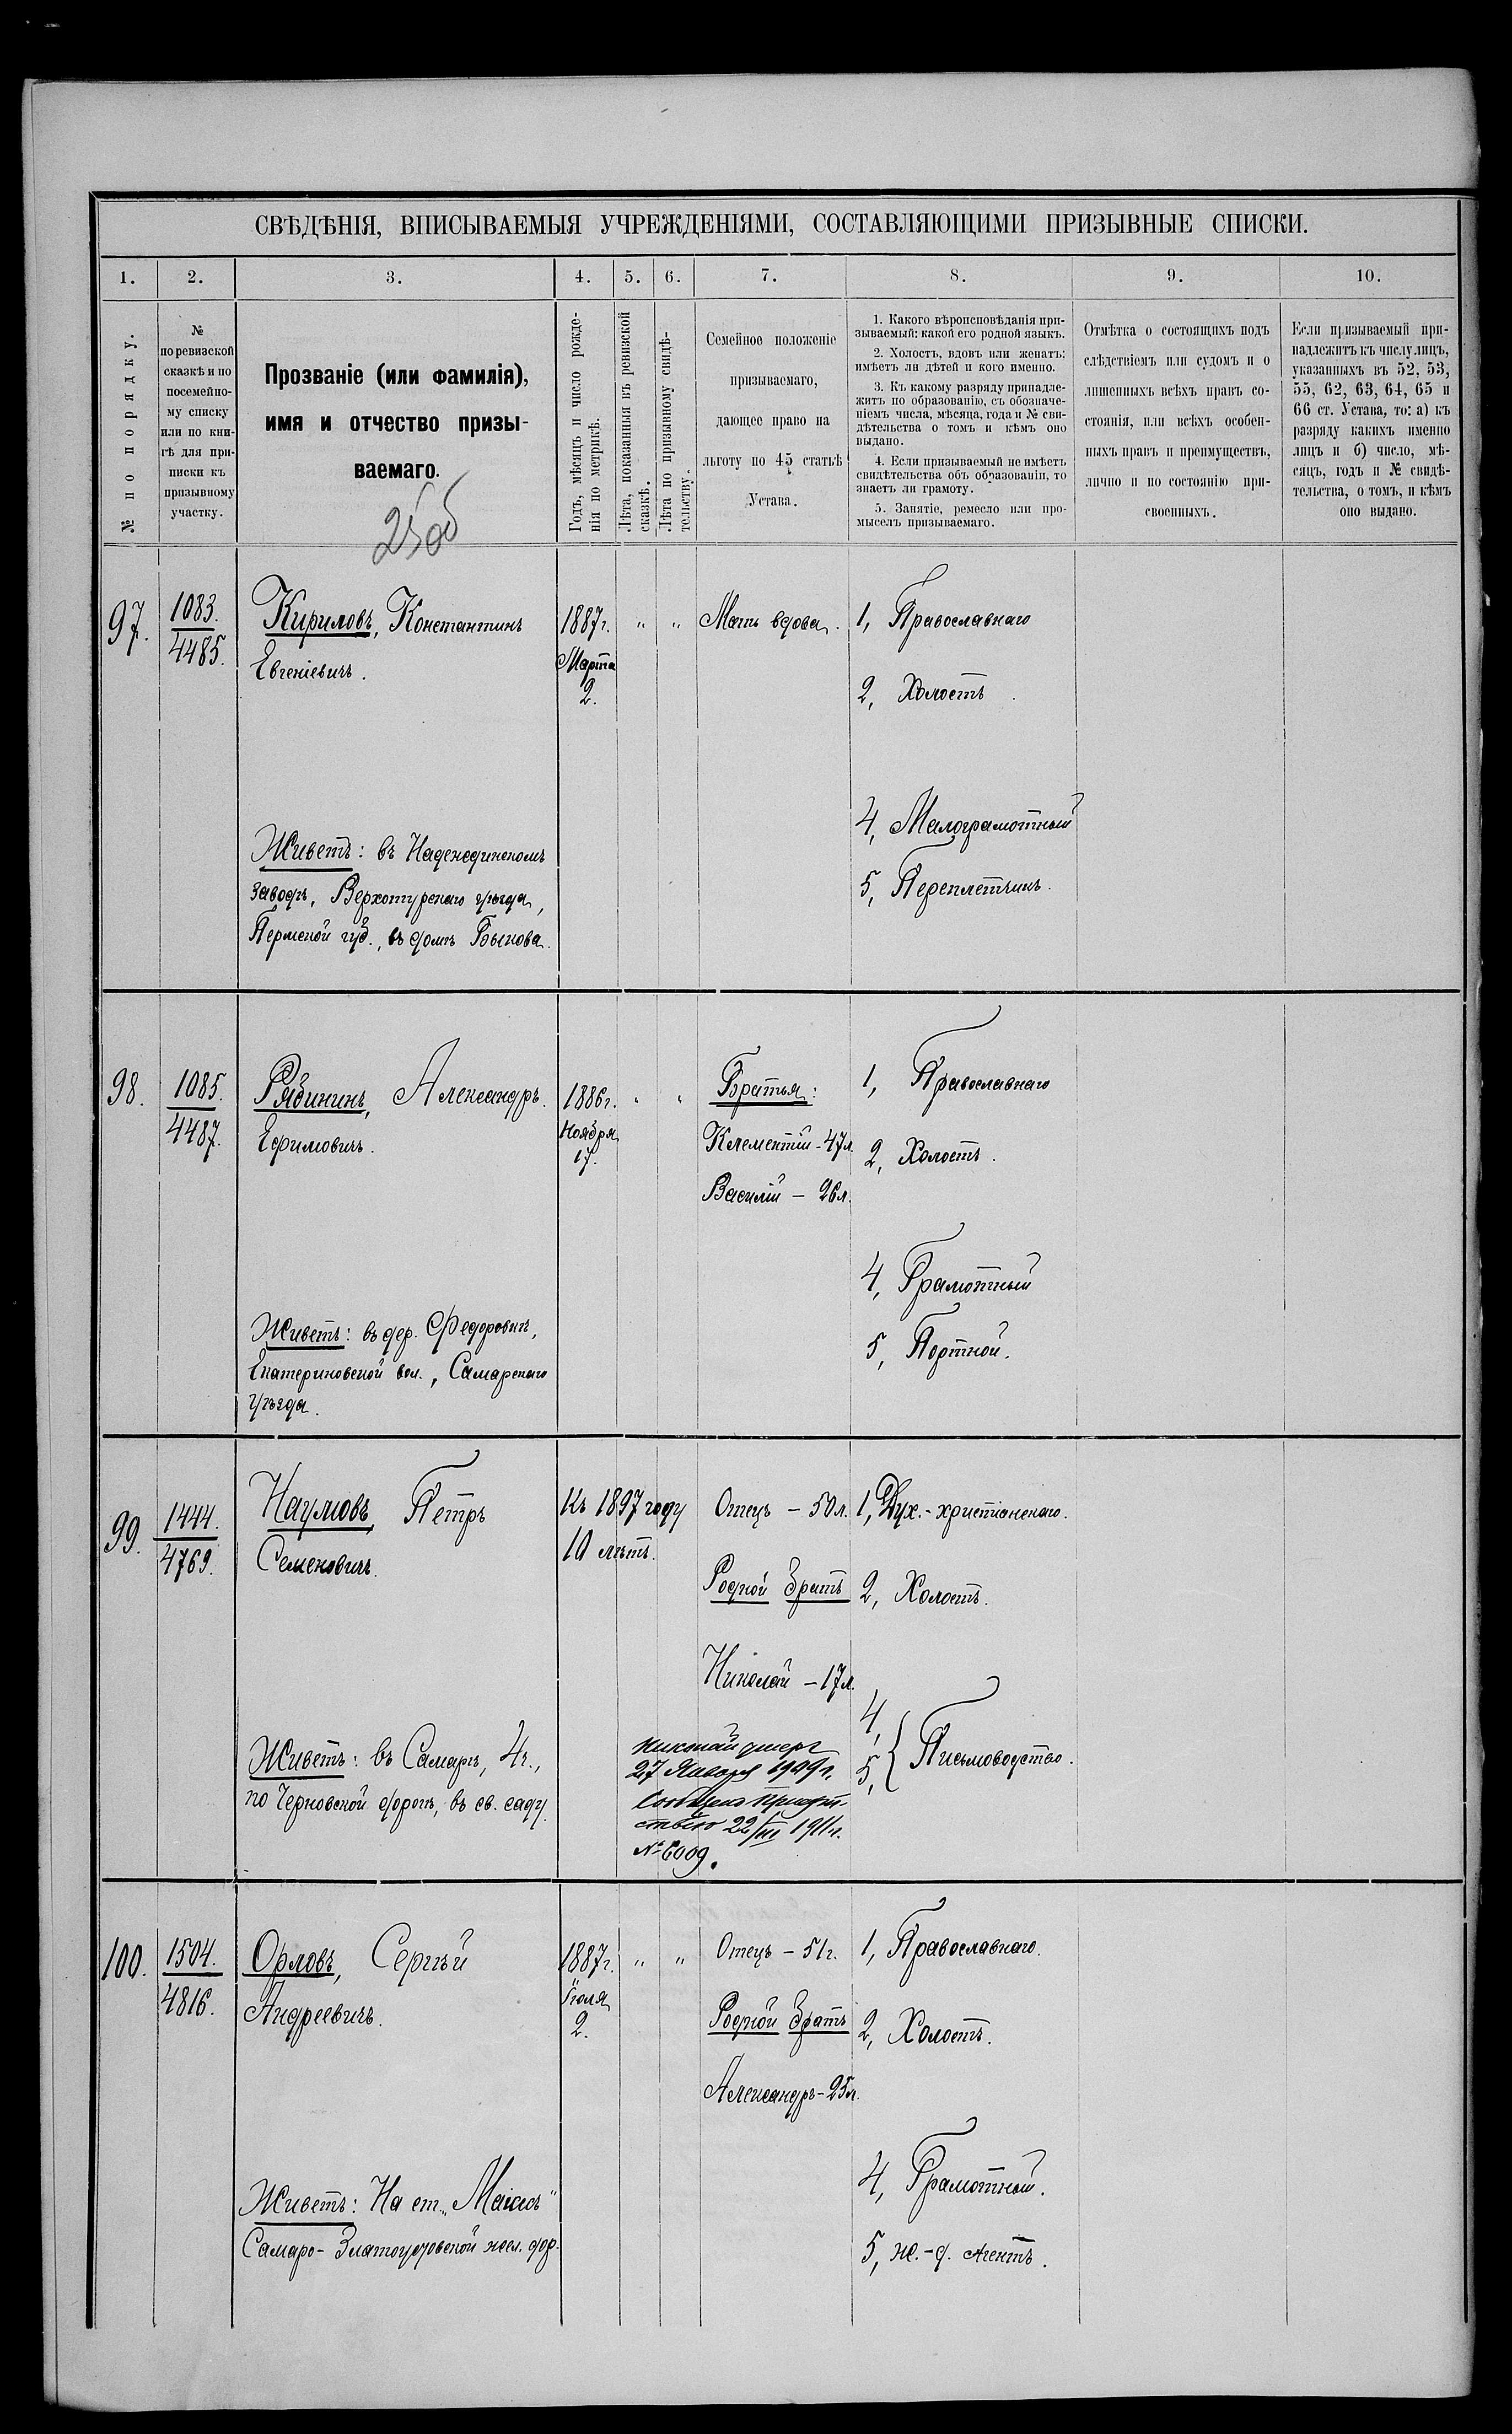 СВѢДѢНІЯ, ВПИСЫВАЕМЫЯ УЧРЕЖДЕНІЯМИ, СОСТАВЛЯЮЩИМИ ПРИЗЫВНЫЕ СПИСКИ.
1. 2. 3. 4. 5. 6. 7. 8. 9. 10.
№ по порядку.
№
по ревизской
сказкѣ и по
посемейно-
му списку
или по кни-
гѣ для при-
писки къ
призывному
участку.
Прозваніе (или фамилія),
имя и отчество призы-
ваемаго.
Годъ, мѣсяцъ и число рожде-
нія по метрикѣ.
Лѣта, показанныя въ ревизской
сказкѣ.
Лѣта по призывному свидѣ-
тельству.
Семейное положеніе
призываемаго,
дающее право на
льготу по 45 статьѣ
Устава.
1. Какого вѣроисповѣданія при-
зываемый: какой его родной языкъ.
2. Холостъ, вдовъ или женатъ;
имѣетъ ли дѣтей и кого именно.
3. Къ какому разряду принадле-
житъ по образованію, съ обозначе-
ніемъ числа, мѣсяца, года и № сви-
дѣтельства о томъ и кѣмъ оно
выдано.
4. Если призываемый не имѣетъ
свидѣтельства объ образованіи, то
знаетъ ли грамоту.
5. Занятіе, ремесло или про-
мыселъ призываемаго.
Отмѣтка о состоящихъ подъ
слѣдствіемъ или судомъ и о
лишенныхъ всѣхъ правъ со-
стоянія, или всѣхъ особен-
ныхъ правъ и преимуществъ,
лично и по состоянію при-
своенныхъ.
Если призываемый при-
надлежитъ къ числу лицъ,
указанныхъ въ 52, 53,
55, 62, 63, 64, 65 и
66 ст. Устава, то: а) къ
разряду какихъ именно
лицъ и б) число, мѣ-
сяцъ, годъ и № свидѣ-
тельства, о томъ, и кѣмъ
оно выдано.
97.
1083.
4485.
Кириловъ, Константинъ
Евгеніевичъ.
Живетъ: въ Надеждинскомъ
заводѣ, Верхотурскаго уѣзда,
Пермской губ., въ домѣ Быкова.
1887г.
Марта
2.
" "
Мать вдова.
1, Православнаго
2, Холостъ
4, Малограмотный
5, Переплетчикъ.
98.
1085.
4487.
Рябининъ, Александръ.
Ефимовичъ.
Живетъ: въ дер. Федоровкѣ,
Екатериновской вол., Самарскаго
уѣзда.
1886г.
Ноября
17.
" "
Братья:
Клементій - 47л.
Василій - 26л.
1, Православнаго
2, Холостъ.
4, Грамотный
5, Портной.
99.
1444.
4769.
Наумовъ, Петръ
Семеновичъ.
Живетъ: въ Самарѣ, 4ч.,
по Черновской дорогѣ, въ св. саду.
Къ 1897 году
10 лѣтъ.
Отецъ - 50л.
Родной братъ
Николай - 17л.
Николай умеръ
27 Января 1909г.
22/III 1911г.
№ 6009.
1, Дух.-христіанскаго.
2, Холостъ.
4,
5, } Письмоводство.
100.
1504.
4816.
Орловъ, Сергѣй
Андреевичъ.
Живетъ: На ст. „Міассъ"
Самаро-Златоустовской жел. дор.
1887г.
Іюля
2.
" "
Отецъ - 51г.
Родной братъ
Александръ - 25л.
1, Православнаго.
2, Холостъ.
4, Грамотный.
5, ж.-д. агентъ.